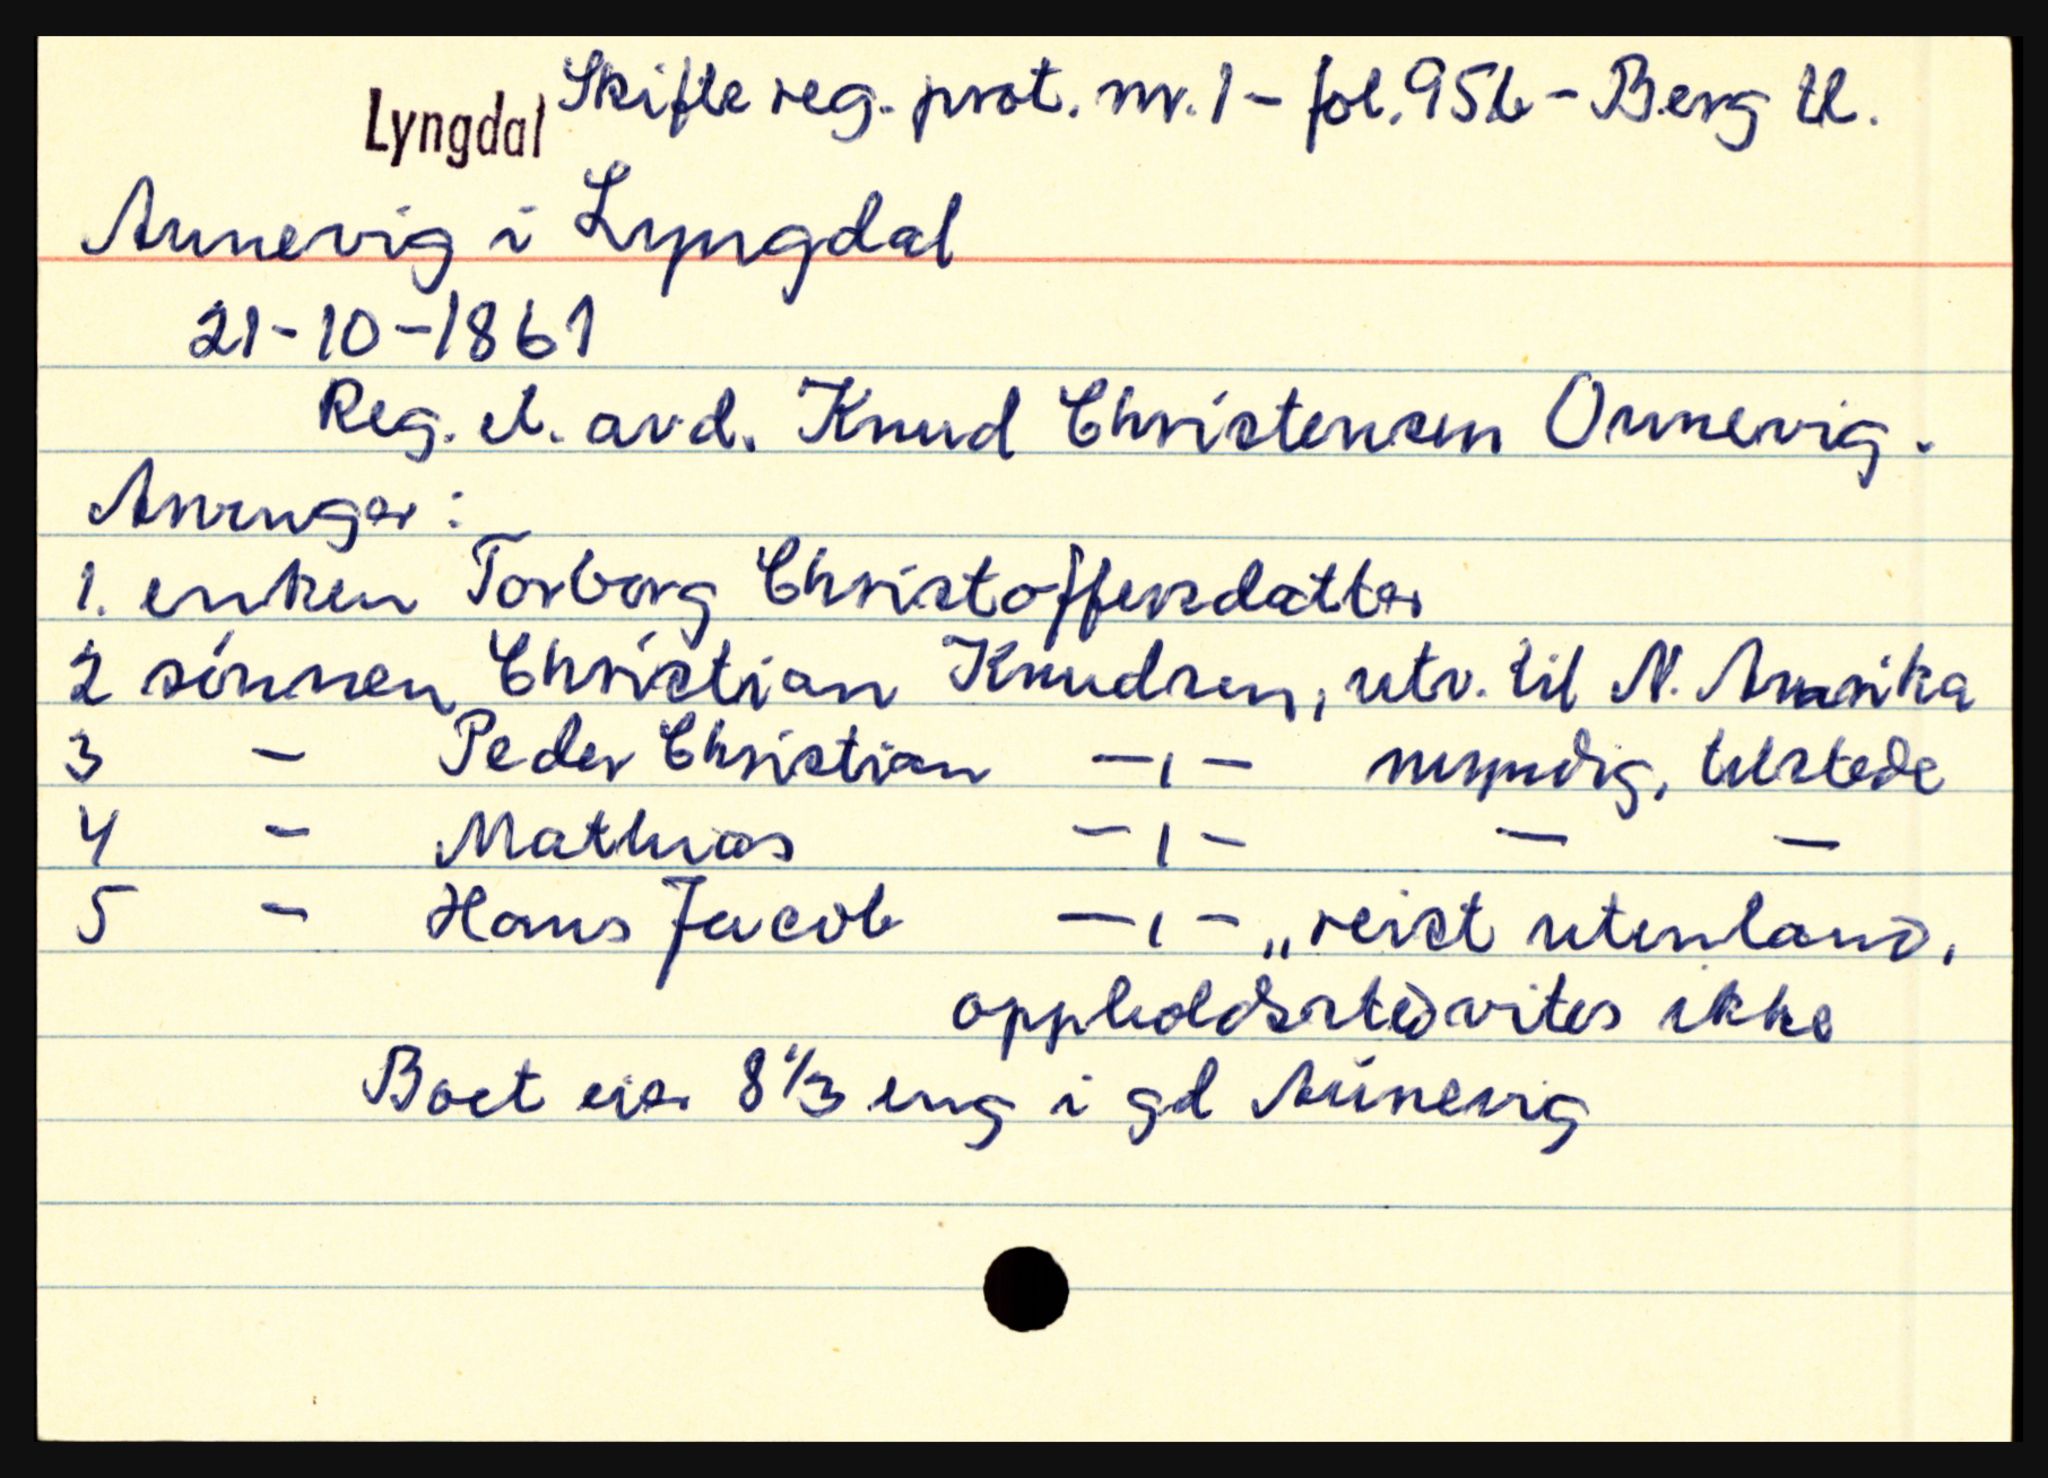 Lyngdal Skifte reg. prot. nr. 1 - fol. 95b - Berg tl.
Aunevig i Lyngdal
21-10-1861
Reg. et. avd. Knud Christensen Ounevig.
Arvinger:
1. enken Torborg Christoffersdatter
2 sönnen Christian Knudsen, utv. til N. Amerika
3 - Peder Christian - ı - myndig, tilstede
4 - Mathias - ı - - -
5 - Hans Jacob - ı - „reist utenland,
oppholdsted vites ikke
Boet eier 8 1/3 eng i gd Aúnevig